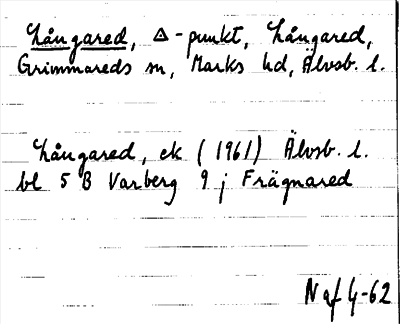 Långared, △-punkt, Långared,
Grimmareds sn, Marks hd, Älvsb. l.
Långared, ek (1961) Älvsb. l.
bl 5 B Varberg 9 j Frägnared
N af G-62